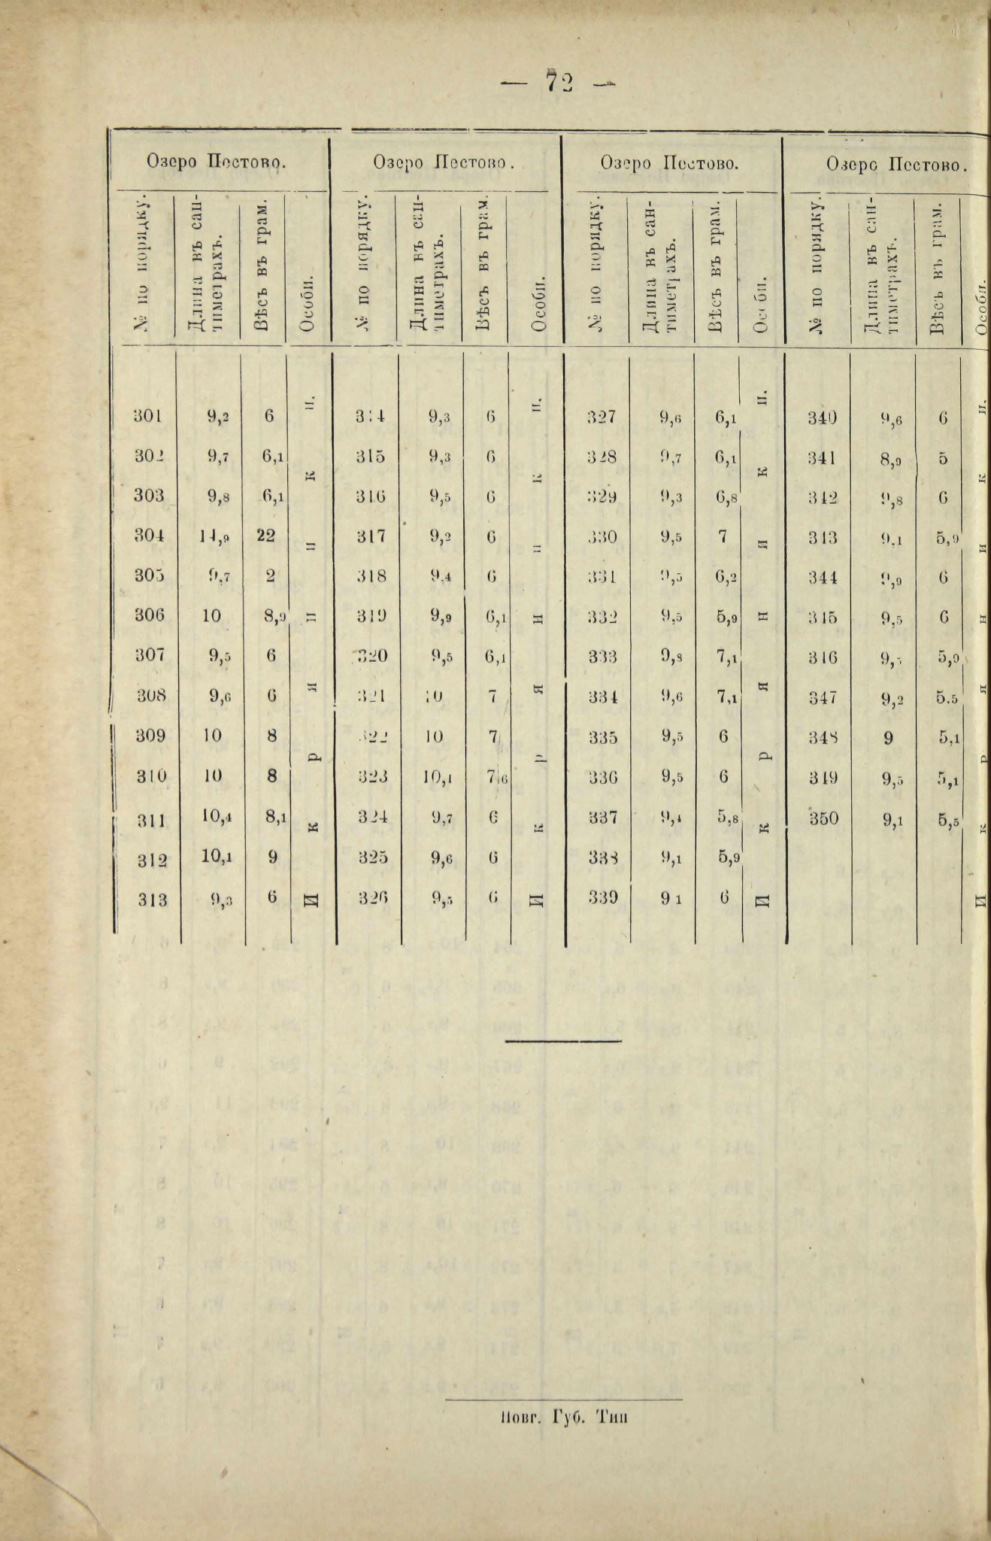 — 72 —
Озеро Пестово. Озеро Пестово. Озеро Пестово. Озеро Пестово.
№ по порядку. Длина въ сантиметрахъ. Вѣсъ въ грам. Особи. № по порядку. Длина въ сантиметрахъ. Вѣсъ въ грам. Особи. № по порядку. Длина въ сантиметрахъ. Вѣсъ въ грам. Особи. № по порядку. Длина въ сантиметрахъ. Вѣсъ въ грам. Особи.
301 9,2 6 314 9,3 6 327 9,6 6,1 340 9,6 6
302 9,7 6,1 315 9,3 6 328 9,7 6,1 341 8,9 5
303 9,8 6,1 316 9,5 6 329 9,3 6,8 342 9,8 6
304 14,9 22 317 9,2 6 330 9,5 7 343 9,1 5,9
305 9,7 2 318 9,4 6 331 9,5 6,2 344 9,9 6
306 10 8,9 319 9,9 6,1 332 9,5 5,9 345 9,5 6
307 9,5 6 320 9,5 6,1 333 9,8 7,1 346 5,9
308 9,6 6 321 10 7 334 9,6 7,1 347 9,2 5,5
309 10 8 322 10 7 335 9,5 6 348 9 5,1
310 10 8 323 10,1 7,6 336 9,5 6 349 9,5 5,1
311 10,4 8,1 324 9,7 6 337 9,4 5,8 350 9,1 5,5
312 10,1 9 325 9,6 6 338 9,1 5,9
313 9,3 6 326 9,5 6 339 9 1 6
Икряники. Икряники. Икряники. Икряники.
Новг. Губ. Тип